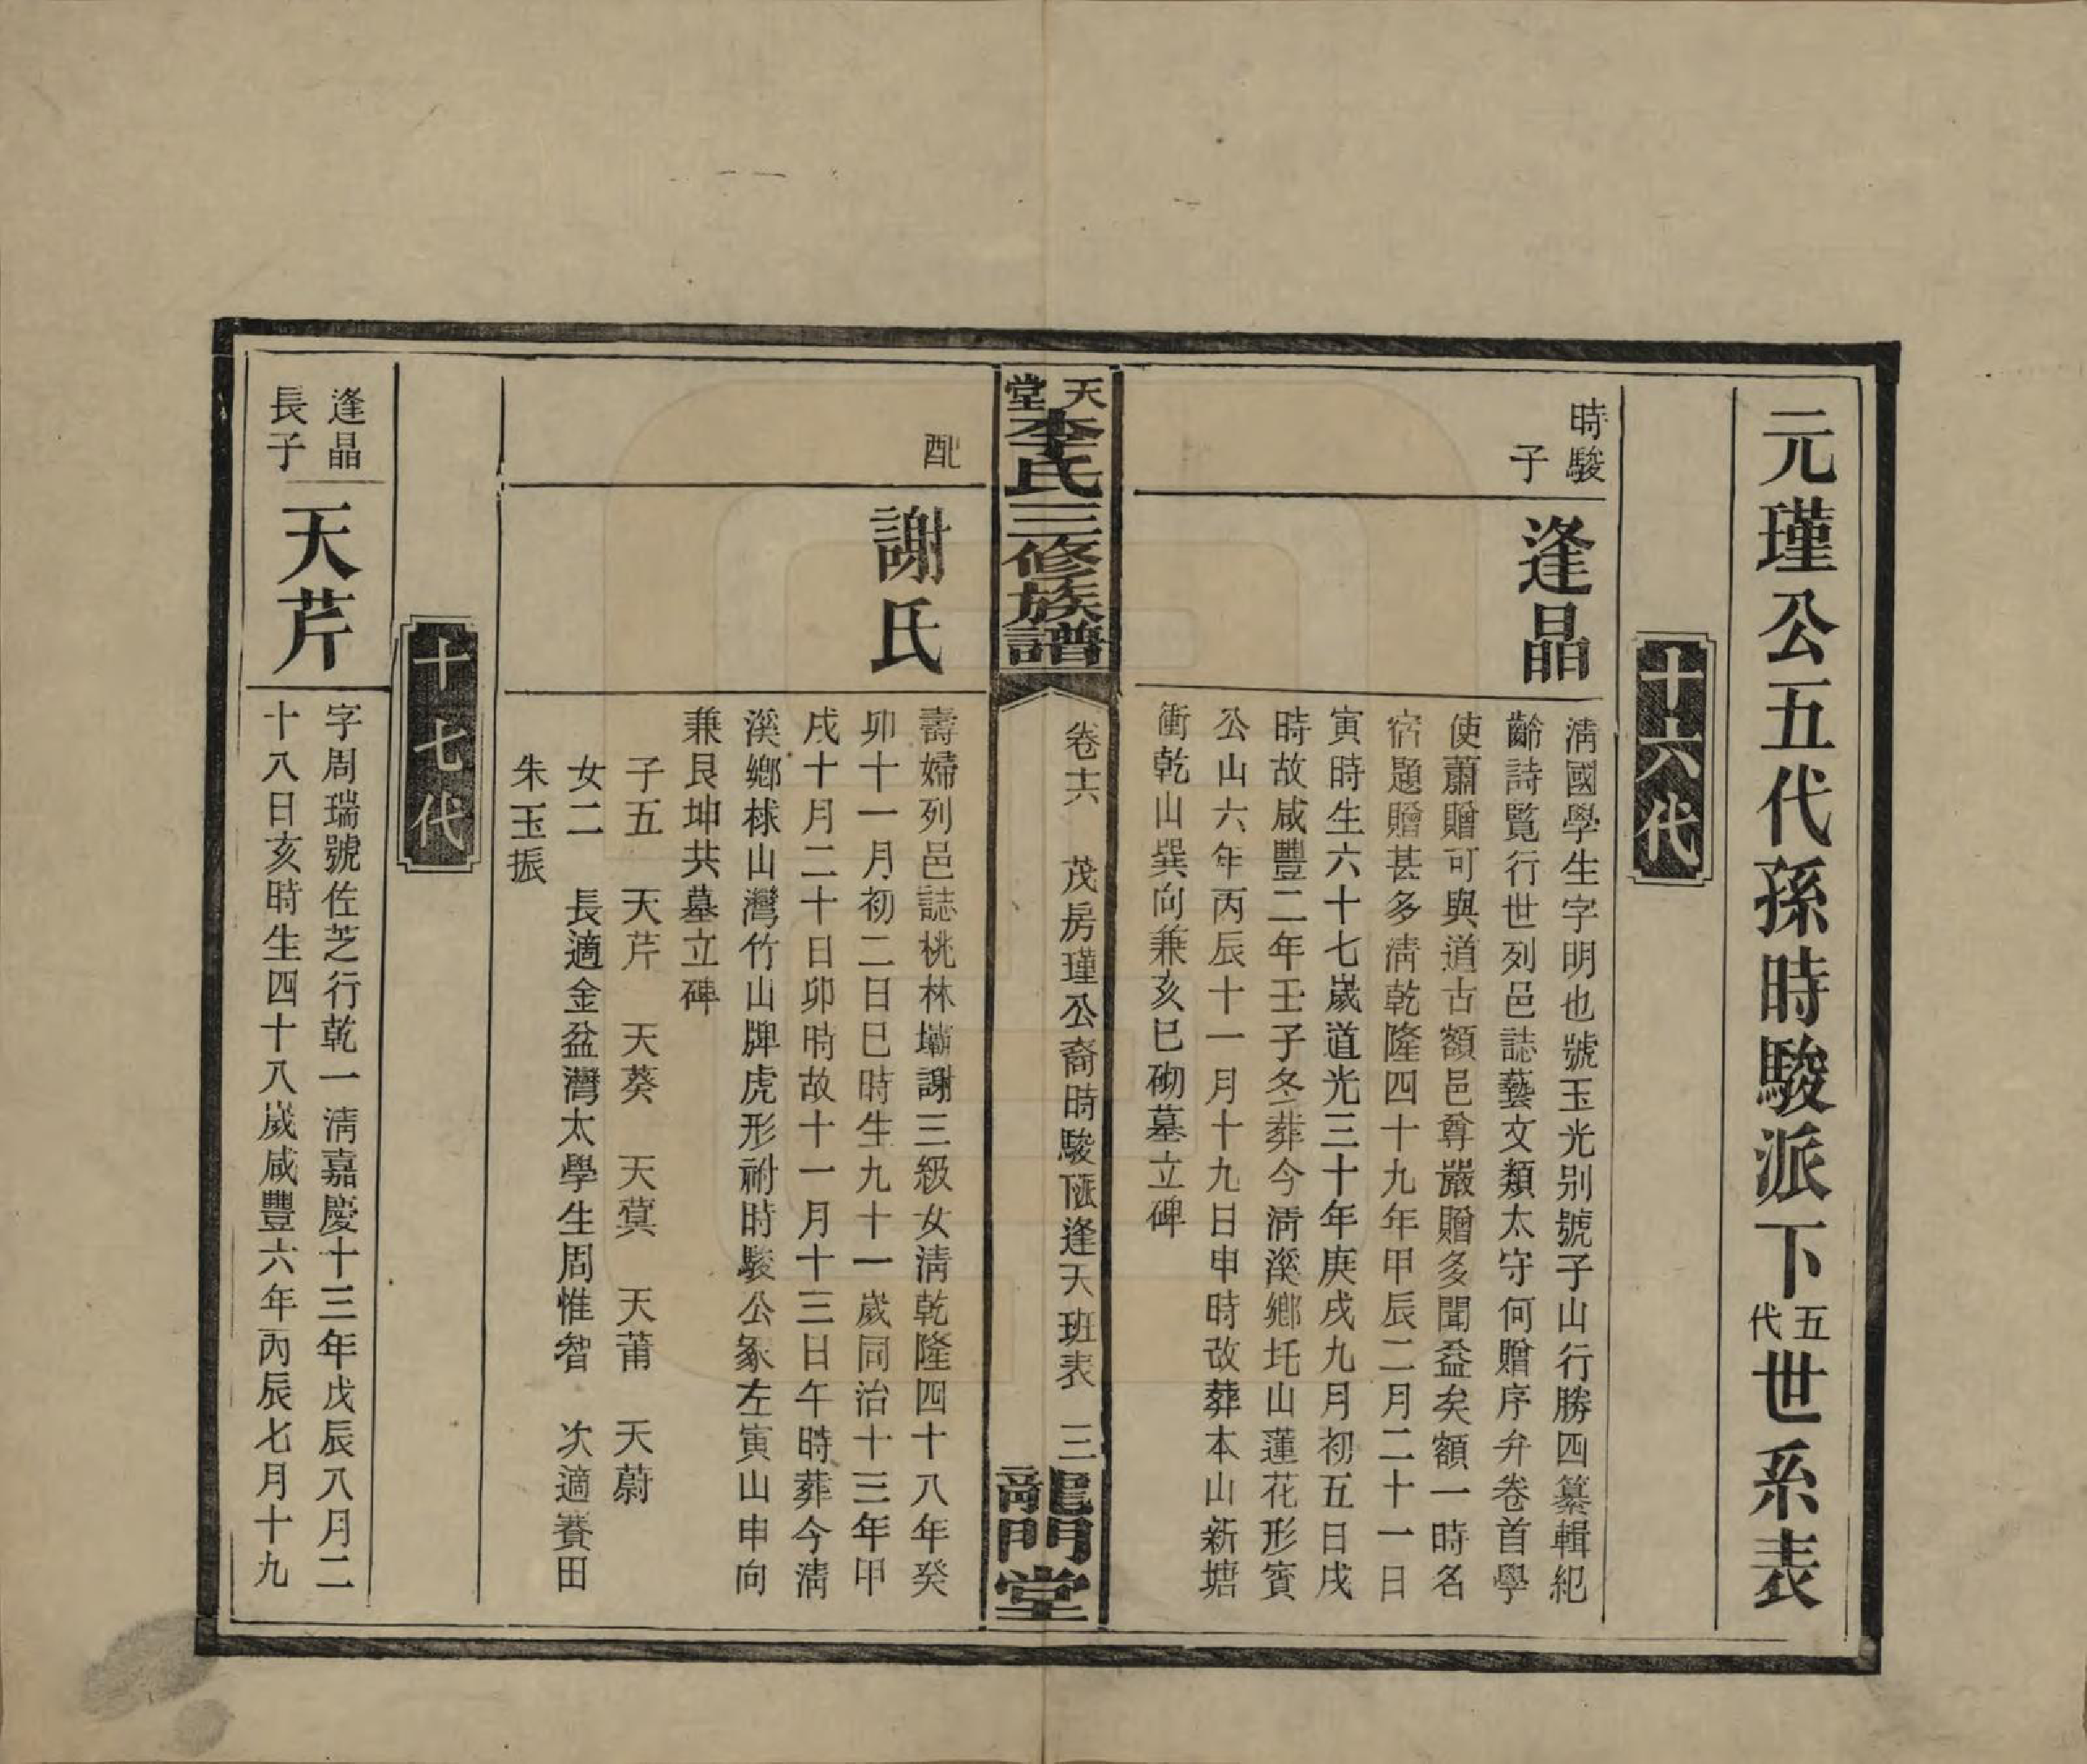 元瑾公五代孫時駿派下五代世系表
十六代
時駿
子
逢晶
清國學生字明也號玉光别號子山行勝四纂輯紀
齡詩覧行世列邑誌藝文類太守何贈序弁卷首學
使蕭贈可與道古額邑尊嚴贈多聞益矣額一時名
宿題贈甚多清乾隆四十九年甲辰二月二十一日
寅時生六十七嵗道光三十年庚戌九月初五日戌
時故咸豐二年壬子冬葬今清溪鄉圫山蓮花形賓
公山六年丙辰十一月十九日申時改葬本山新塘
衝乾山巽向兼亥巳砌墓立碑
天堂李氏三修族譜
卷十六 茂房瑾公裔時駿派逢天班表 三
龍門堂
配
謝氏
壽婦列邑誌桃林壩謝三級女清乾隆四十八年癸
卯十一月初二日巳時生九十一嵗同治十三年甲
戌十月二十日卯時故十一月十三日午時葬今清
溪鄉梂山灣竹山牌虎形祔時駿公冢左寅山申向
兼艮坤共墓立碑
子五 天芹 天葵 天蓂 天莆 天蔚
女二 長適金盆灣太學生周惟智 次適賽田
朱玉振
十七代
逢晶
長子
天芹
字周瑞號佐芝行乾一清嘉慶十三年戊辰八月二
十八日亥時生四十八嵗咸豐六年丙辰七月十九